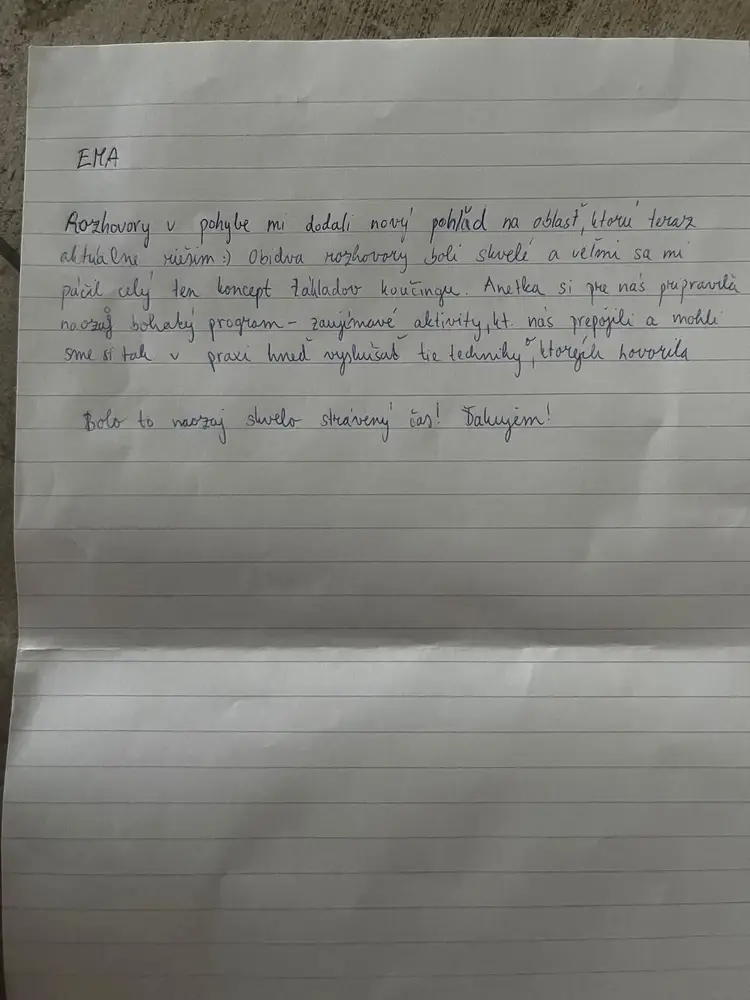 EMA
Rozhovory v pohybe mi dodali nový pohľad na oblasť, ktorú teraz
aktuálne riešim :) Obidva rozhovory boli skvelé a veľmi sa mi
páčil celý ten koncept Základov koučingu. Anetka si pre nás pripravila
naozaj bohatý program - zaujímavé aktivity, kt. nás prepojili a mohli
sme si tak v praxi hneď vyskúšať tie techniky, o ktorých hovorila
Bolo to naozaj skvelo strávený čas! Ďakujem!